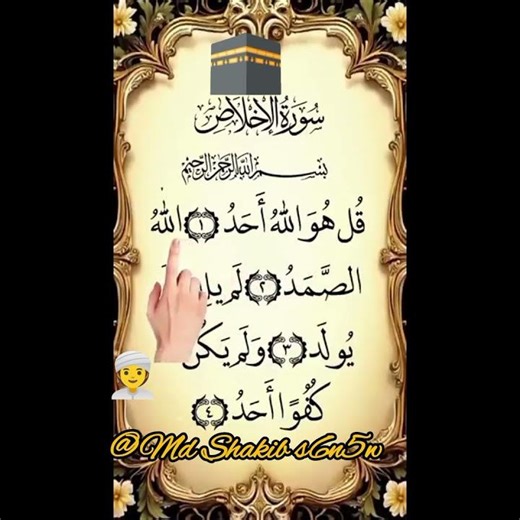 سُورَةُ الإِخْلَاصِ
بِسْمِ اللَّهِ الرَّحْمَٰنِ الرَّحِيمِ
قُلْ هُوَ اللَّهُ أَحَدٌ ۝١ اللَّهُ
الصَّمَدُ ۝٢ لَمْ
يُولَدْ ۝٣ وَلَمْ يَكُن
كُفُوًا أَحَدٌ ۝٤
@Md Shakib s6n5w